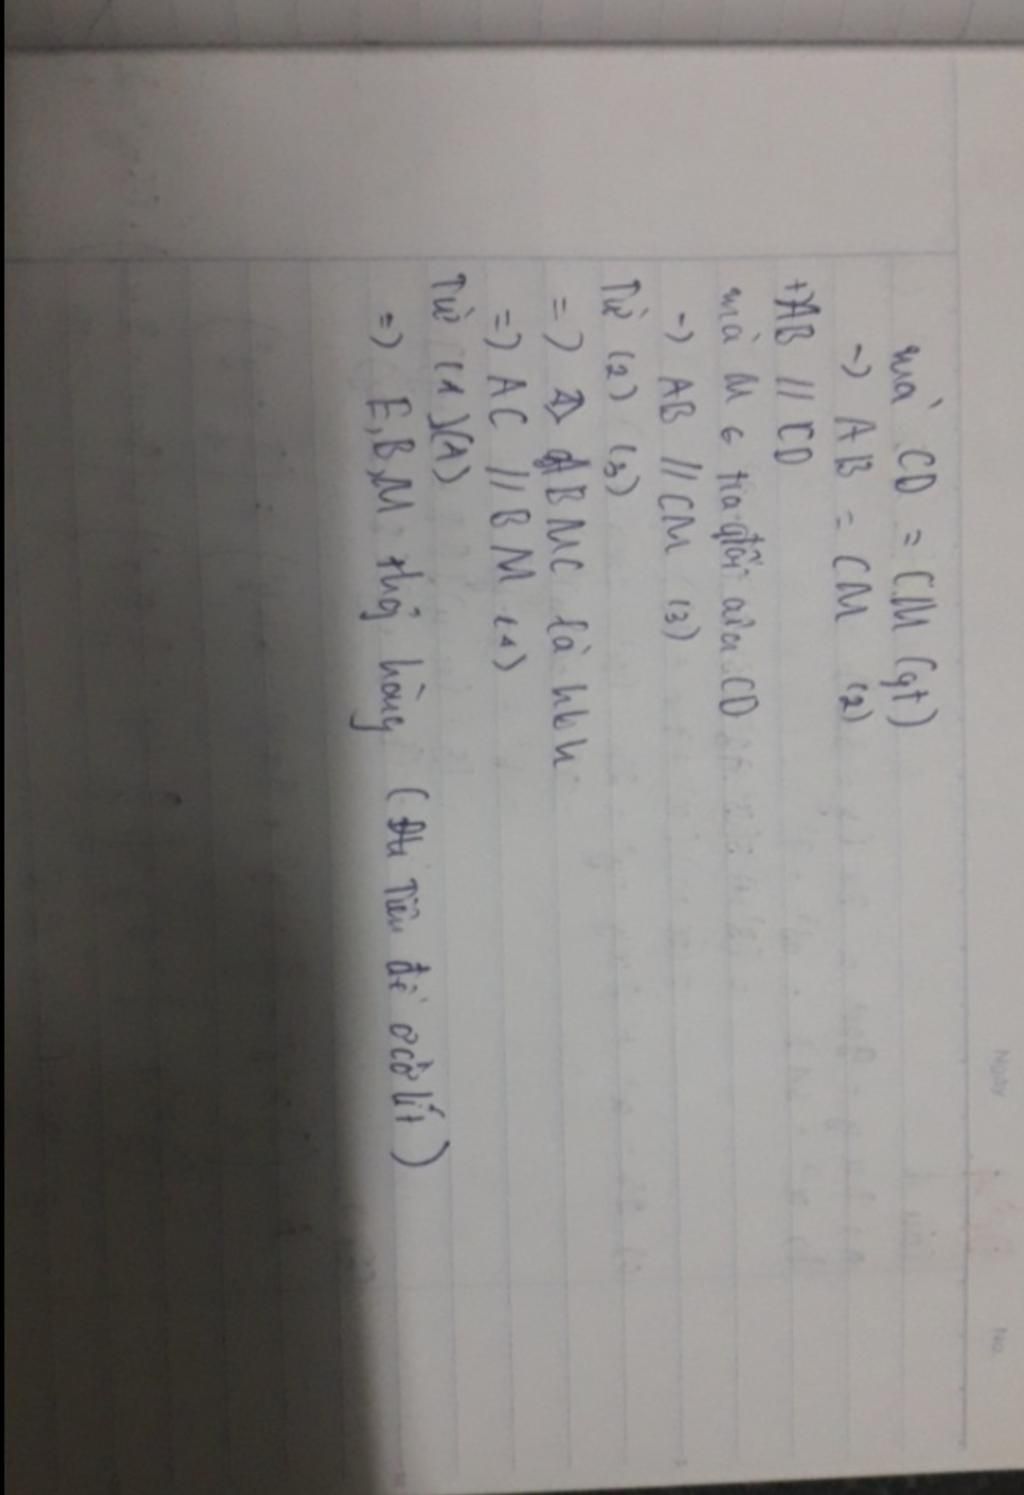 mà CD = CM (gt)
-) AB = CM (2)
+) AB // CD
mà M ∈ tia đối của CD
-) AB // CM (3)
Từ (2) (3)
=) ABMC là hbh
=) AC // BM (1)
Từ (1)(1)
=) E,B,M thg hàng (Đl Tiên đề ơcờlít)
Ngày
No.